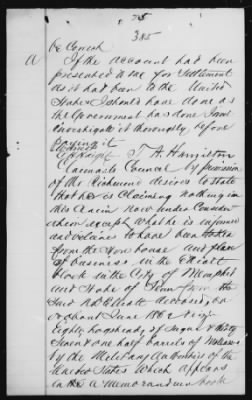 385
If the account had been
presented to me for settlement
as it had been to the United
States I should have done as
the Government has done
investigate it thoroughly before
paying it
T. A. Hamilton
Claimants Council by permission
of the desires to state
that he is claiming nothing in
this claim now under
except what he is informed
and believes to have been taken
from the Ware house and place
of business, in the Elliott
block in the City of Memphis
and State of Tenn from the
said Elliott deceased, on
or about June 1862
Eighty hogsheads of Sugar & thirty
seven & one half barrels of Molasses
by the Military Authorities of the
United States which appears
in the a Memorandum book